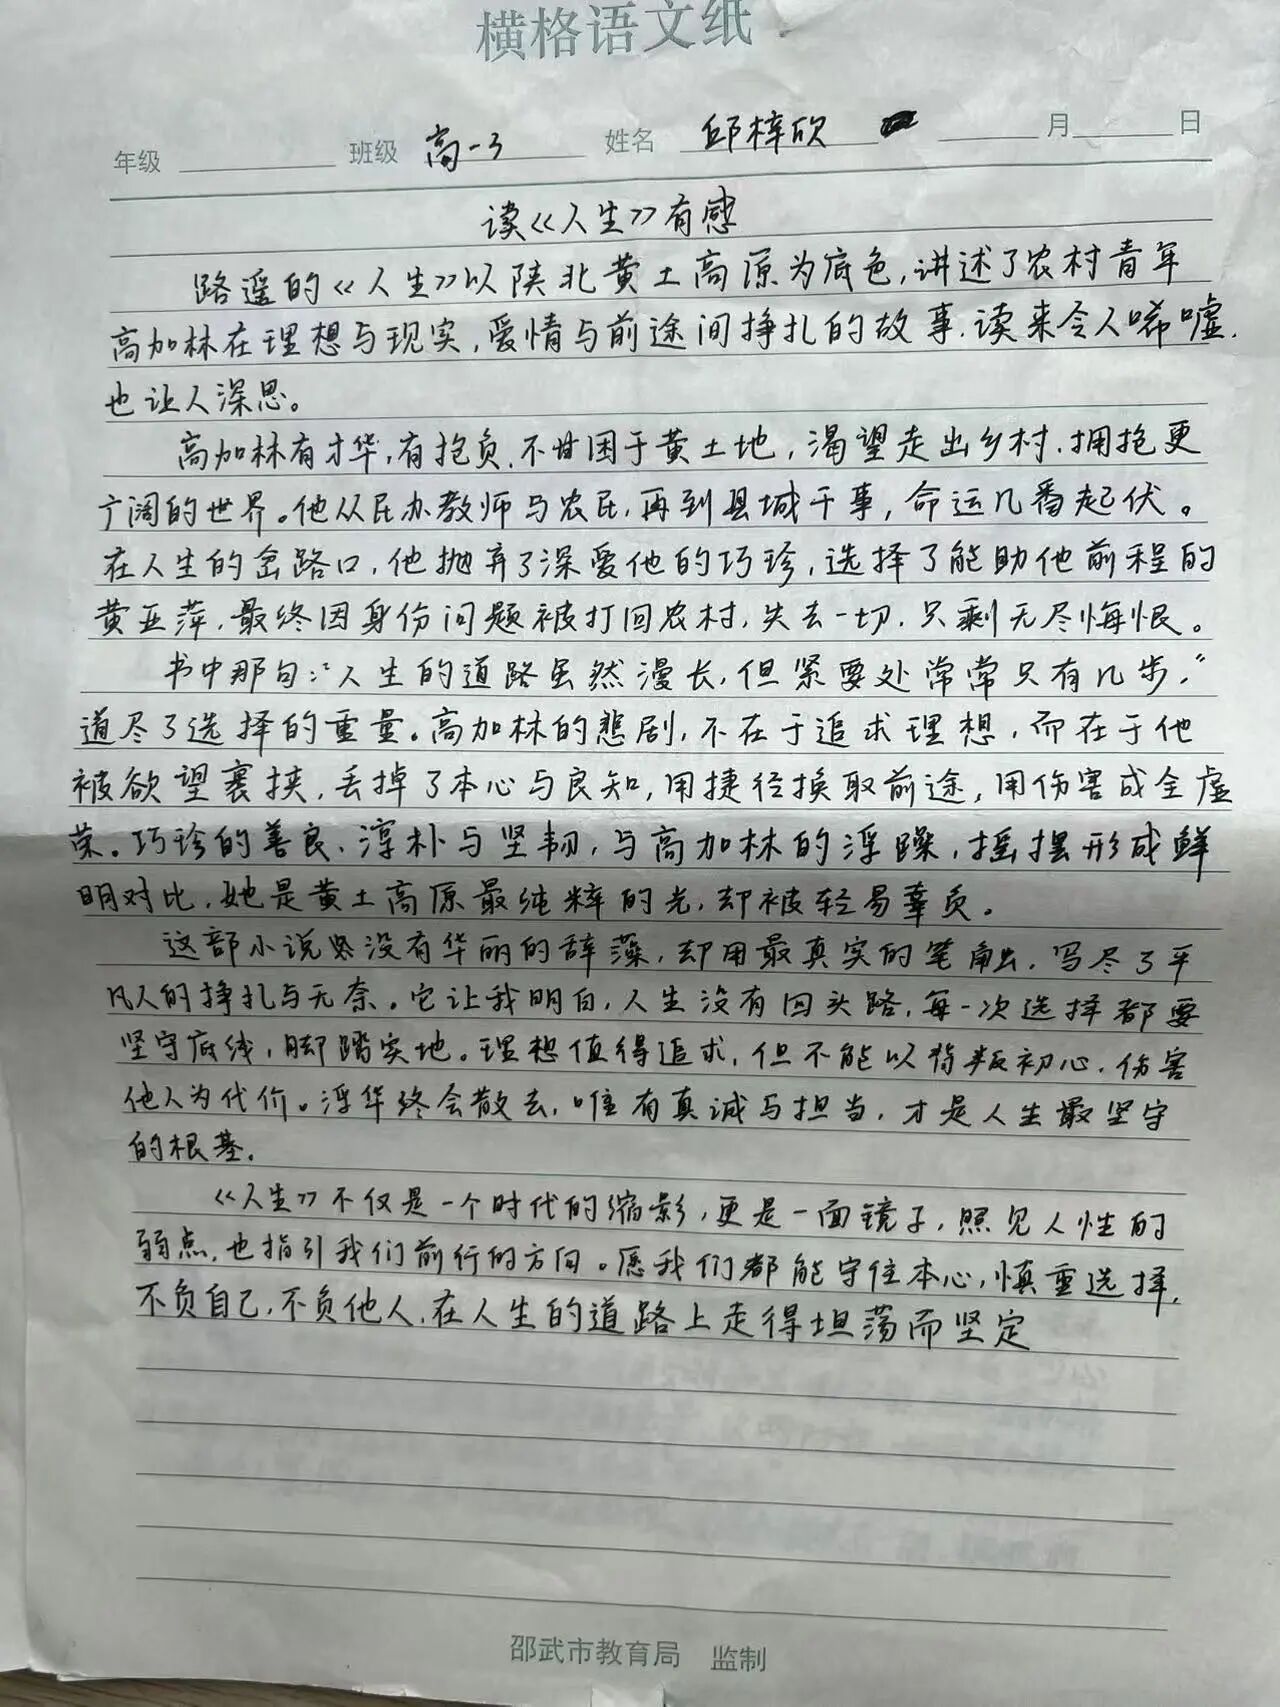 横格语文纸
年级 班级 高一3 姓名 邱梓欣 月 日
读《人生》有感
路遥的《人生》以陕北黄土高原为底色,讲述了农村青年
高加林在理想与现实,爱情与前途间挣扎的故事.读来令人唏嘘.
也让人深思。
高加林有才华,有抱负.不甘困于黄土地,渴望走出乡村.拥抱更
广阔的世界。他从民办教师与农民,再到县城干事,命运几番起伏。
在人生的岔路口,他抛弃了深爱他的巧珍,选择了能助他前程的
黄亚萍,最终因身份问题被打回农村,失去一切.只剩无尽悔恨。
书中那句:“人生的道路虽然漫长,但紧要处常常只有几步,”
道尽了选择的重量。高加林的悲剧,不在于追求理想,而在于他
被欲望裹挟,丢掉了本心与良知,用捷径换取前途,用伤害成全虚
荣。巧珍的善良、淳朴与坚韧,与高加林的浮躁,摇摆形成鲜
明对比,她是黄土高原最纯粹的光,却被轻易辜负。
这部小说没有华丽的辞藻,却用最真实的笔触,写尽了平
凡人的挣扎与无奈。它让我明白,人生没有回头路,每一次选择都要
坚守底线,脚踏实地。理想值得追求,但不能以背叛初心,伤害
他人为代价。浮华终会散去,唯有真诚与担当,才是人生最坚守
的根基.
《人生》不仅是一个时代的缩影,更是一面镜子,照见人性的
弱点,也指引我们前行的方向。愿我们都能守住本心,慎重选择,
不负自己,不负他人,在人生的道路上走得坦荡而坚定
邵武市教育局 监制